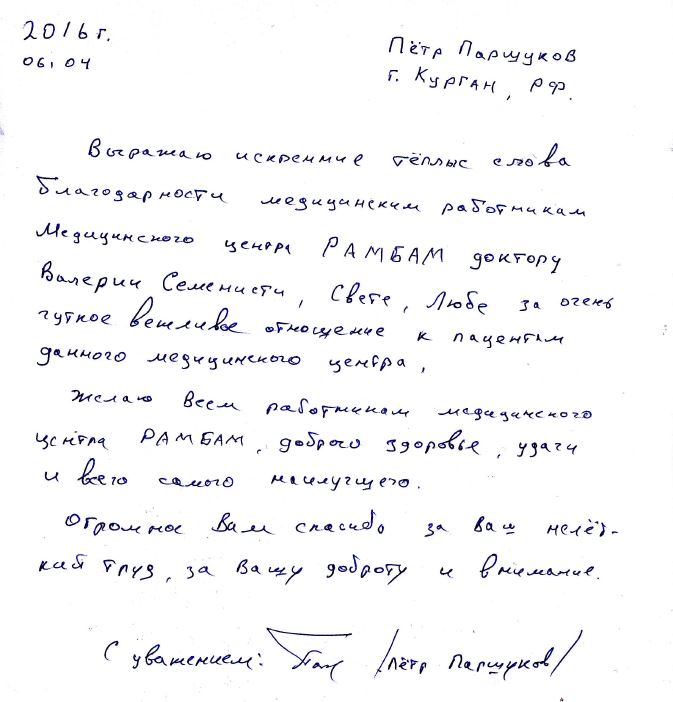 2016 г.
06.04
Пётр Паршуков
г. Курган, РФ.
Выражаю искренние тёплые слова
благодарности медицинским работникам
Медицинского центра РАМБАМ доктору
Валерии Семенисти, Свете, Любе за очень
чуткое вежливое отношение к пацентам
данного медицинского центра,
Желаю всем работникам медицинского
центра РАМБАМ, доброго здоровье, удачи
и всего самого наилучшего.
Огромное Вам спасибо за Ваш нелёг-
кий труд, за Вашу доброту и внимание.
С уважением: /Пётр Паршуков/